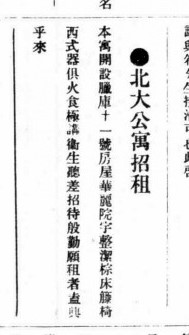 名
●北大公寓招租
本寓開設臘庫十一號房屋華麗院宇整潔棕床籐椅
西式器俱火食極講衞生聽差招待殷勤願租者盍興
乎來